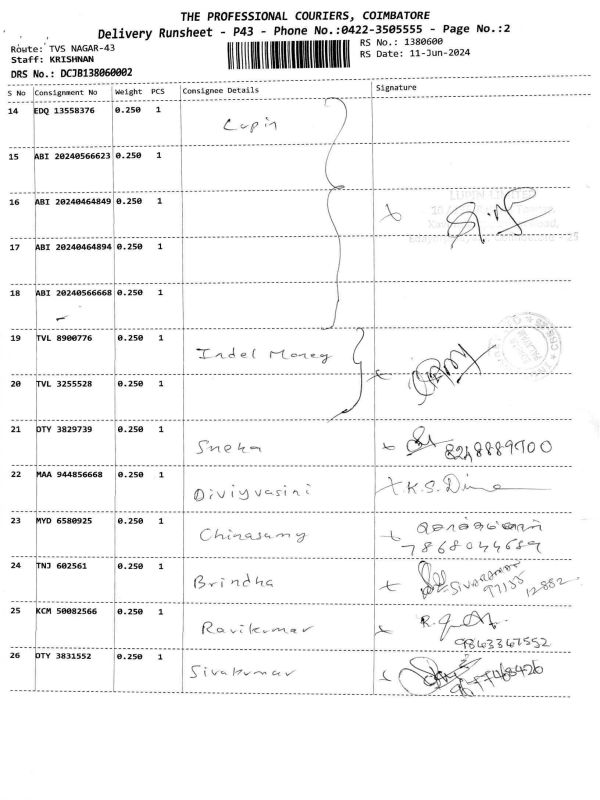 THE PROFESSIONAL COURIERS, COIMBATORE
Delivery Runsheet - P43 - Phone No.:0422-3505555 - Page No.:2
Route: TVS NAGAR-43
RS No.: 1380600
Staff: KRISHNAN
RS Date: 11-Jun-2024
DRS No.: DCJB138060002
S No Consignment No Weight PCS Consignee Details Signature
14 EDQ 13558376 0.250 1 Lupin
15 ABI 20240566623 0.250 1
16 ABI 20240464849 0.250 1
17 ABI 20240464894 0.250 1
18 ABI 20240566668 0.250 1
19 TVL 8900776 0.250 1 Indel Money
20 TVL 3255528 0.250 1
21 DTY 3829739 0.250 1 Sneka
8248889700
22 MAA 944856668 0.250 1 Diviyvasini K.S.
23 MYD 6580925 0.250 1 Chinasamy
7868044689
24 TNJ 602561 0.250 1 Brindha
97155
12882
25 KCM 50082566 0.250 1 Ravikumar
9843367552
26 DTY 3831552 0.250 1 Sivakumar